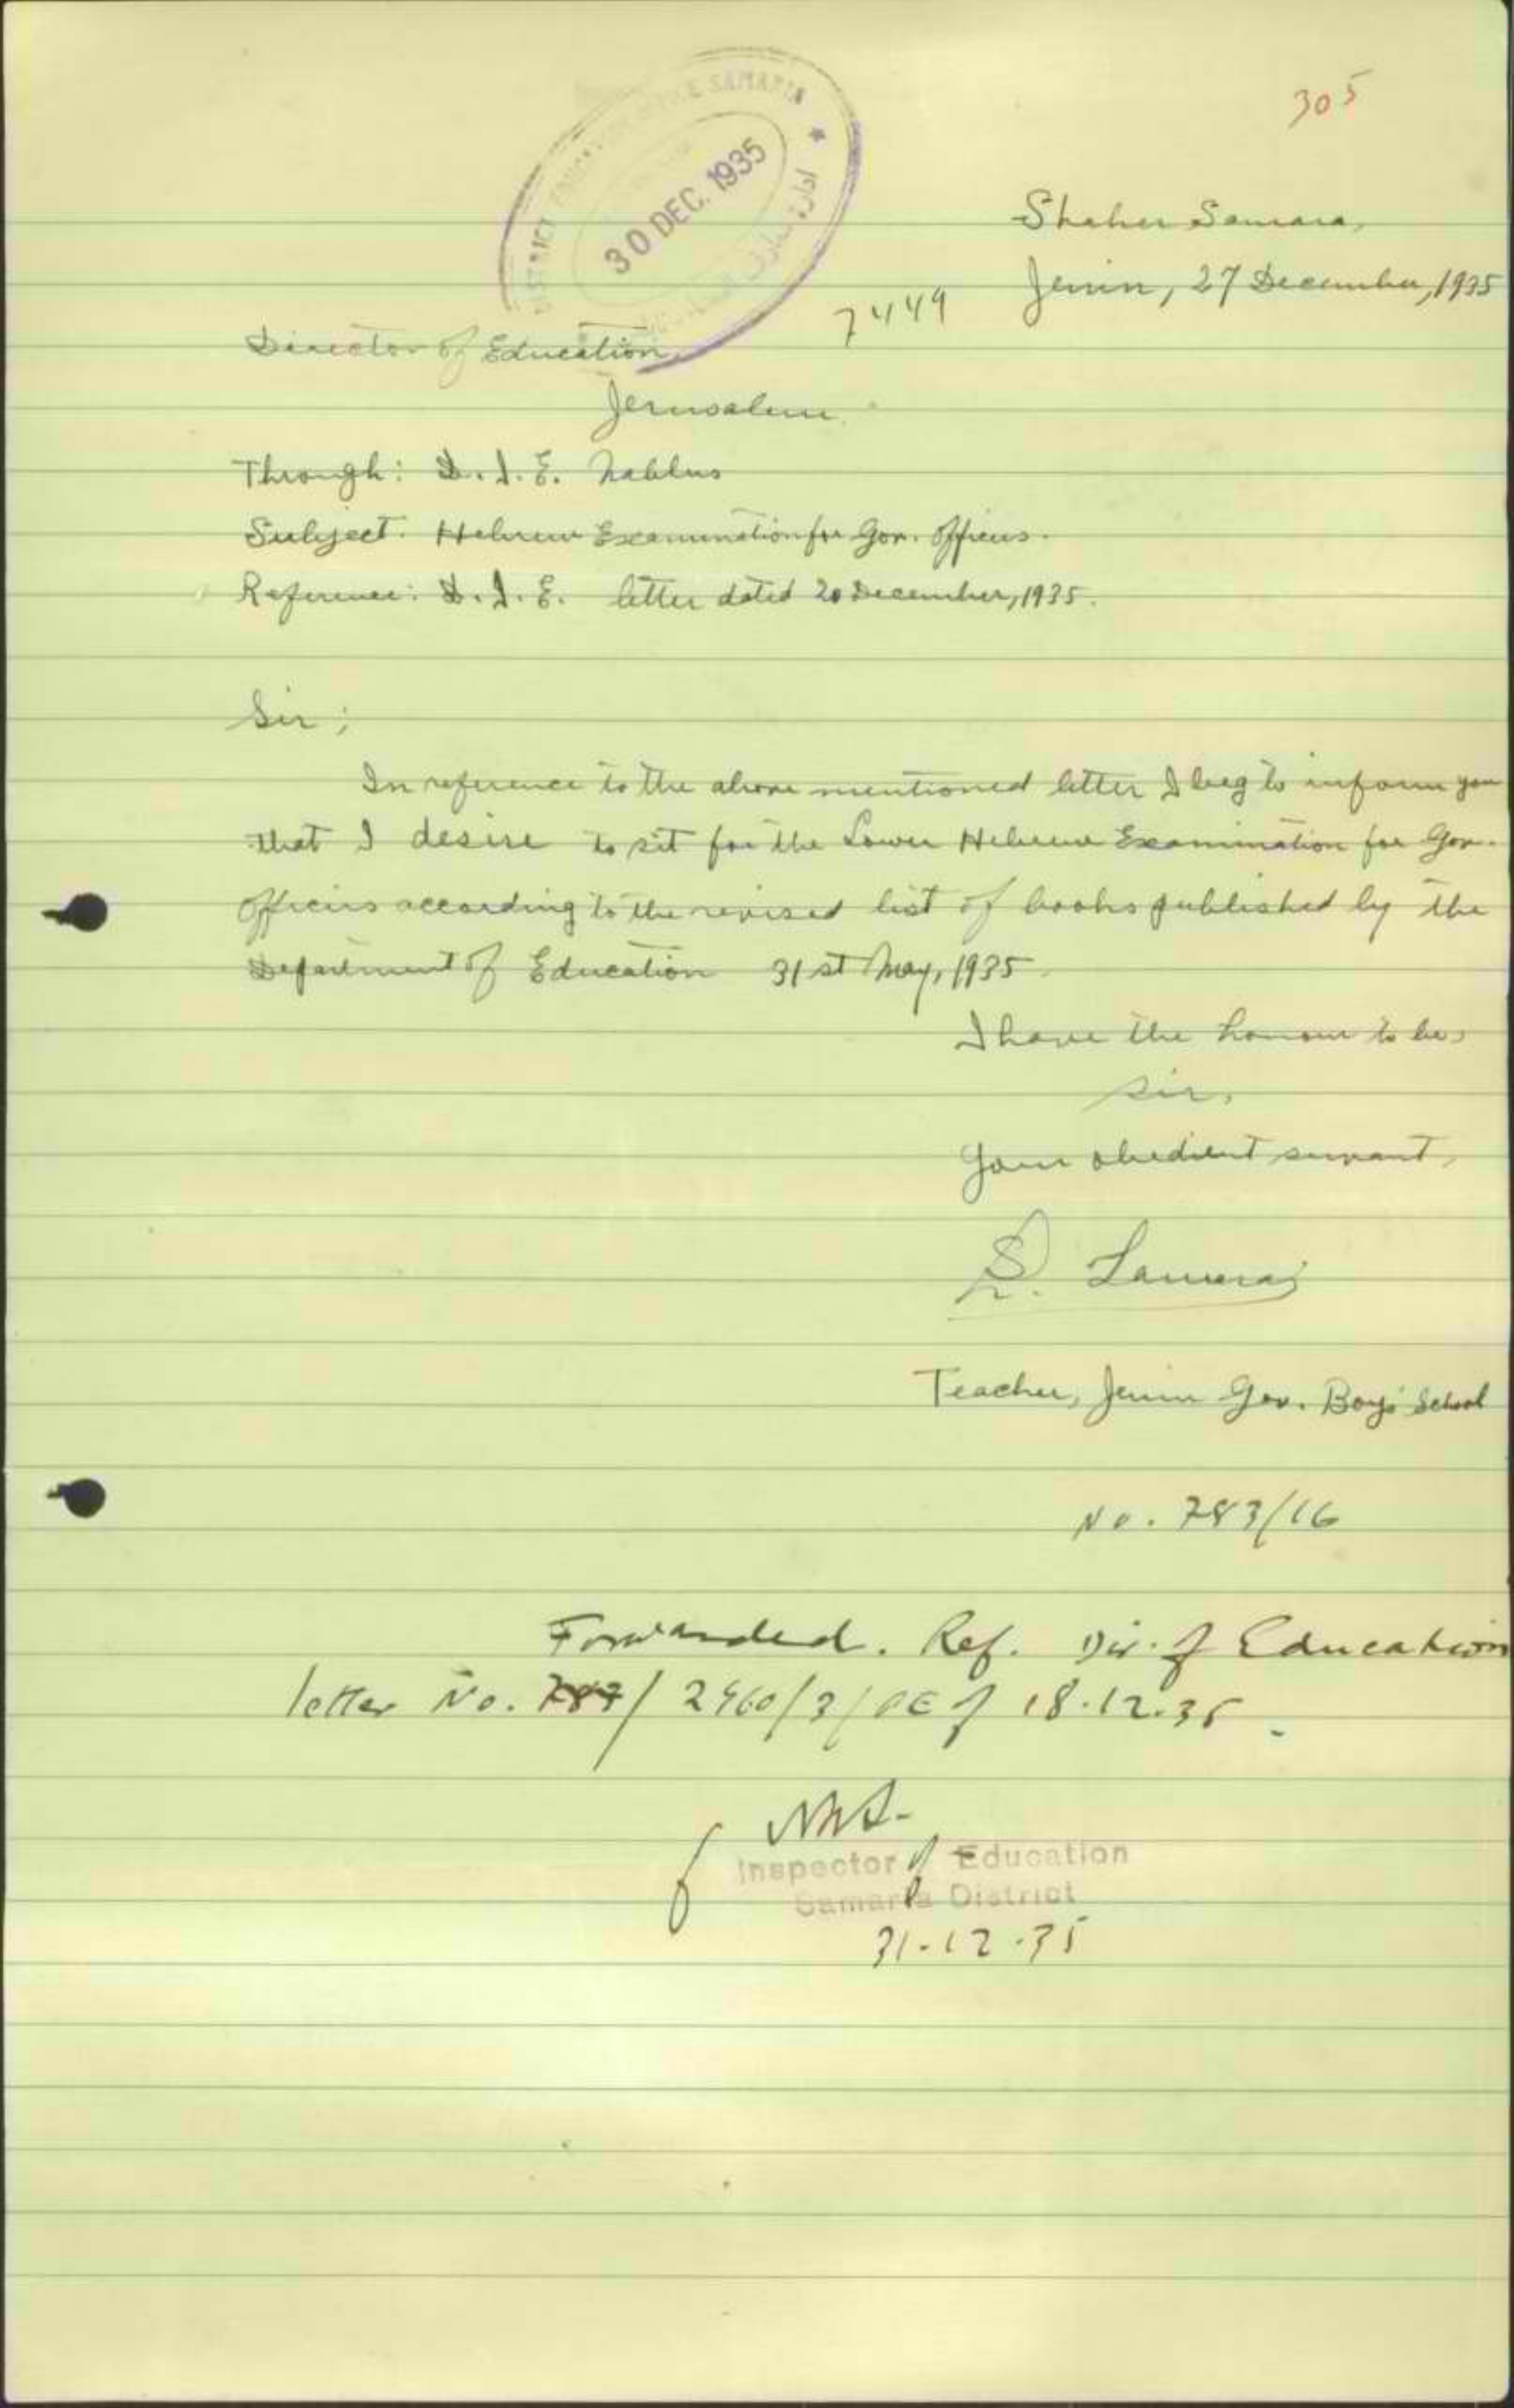 305
DISTRICT EDUCATION OFFICE SAMARIA
30 DEC. 1935
ادارة معارف
Shaher Samara,
Jenin, 27 December, 1935
7449
Director of Education,
Jerusalem.
Through: D.I.E. Nablus
Subject: Hebrew Examination for Gov. Officers.
Reference: D.I.E. letter dated 20 December, 1935.
Sir;
In reference to the above mentioned letter I beg to inform you
that I desire to sit for the Lower Hebrew Examination for Gov.
Officers according to the revised list of books published by the
Department of Education 31st May, 1935.
I have the honour to be,
Sir,
Your obedient servant,
S. Samara
Teacher, Jenin Gov. Boys' School
No. 783/16
Forwarded. Ref. Dir. of Education
letter No. / 2460/3/ of 18.12.35.
Inspector of Education
Samaria District
31-12-35